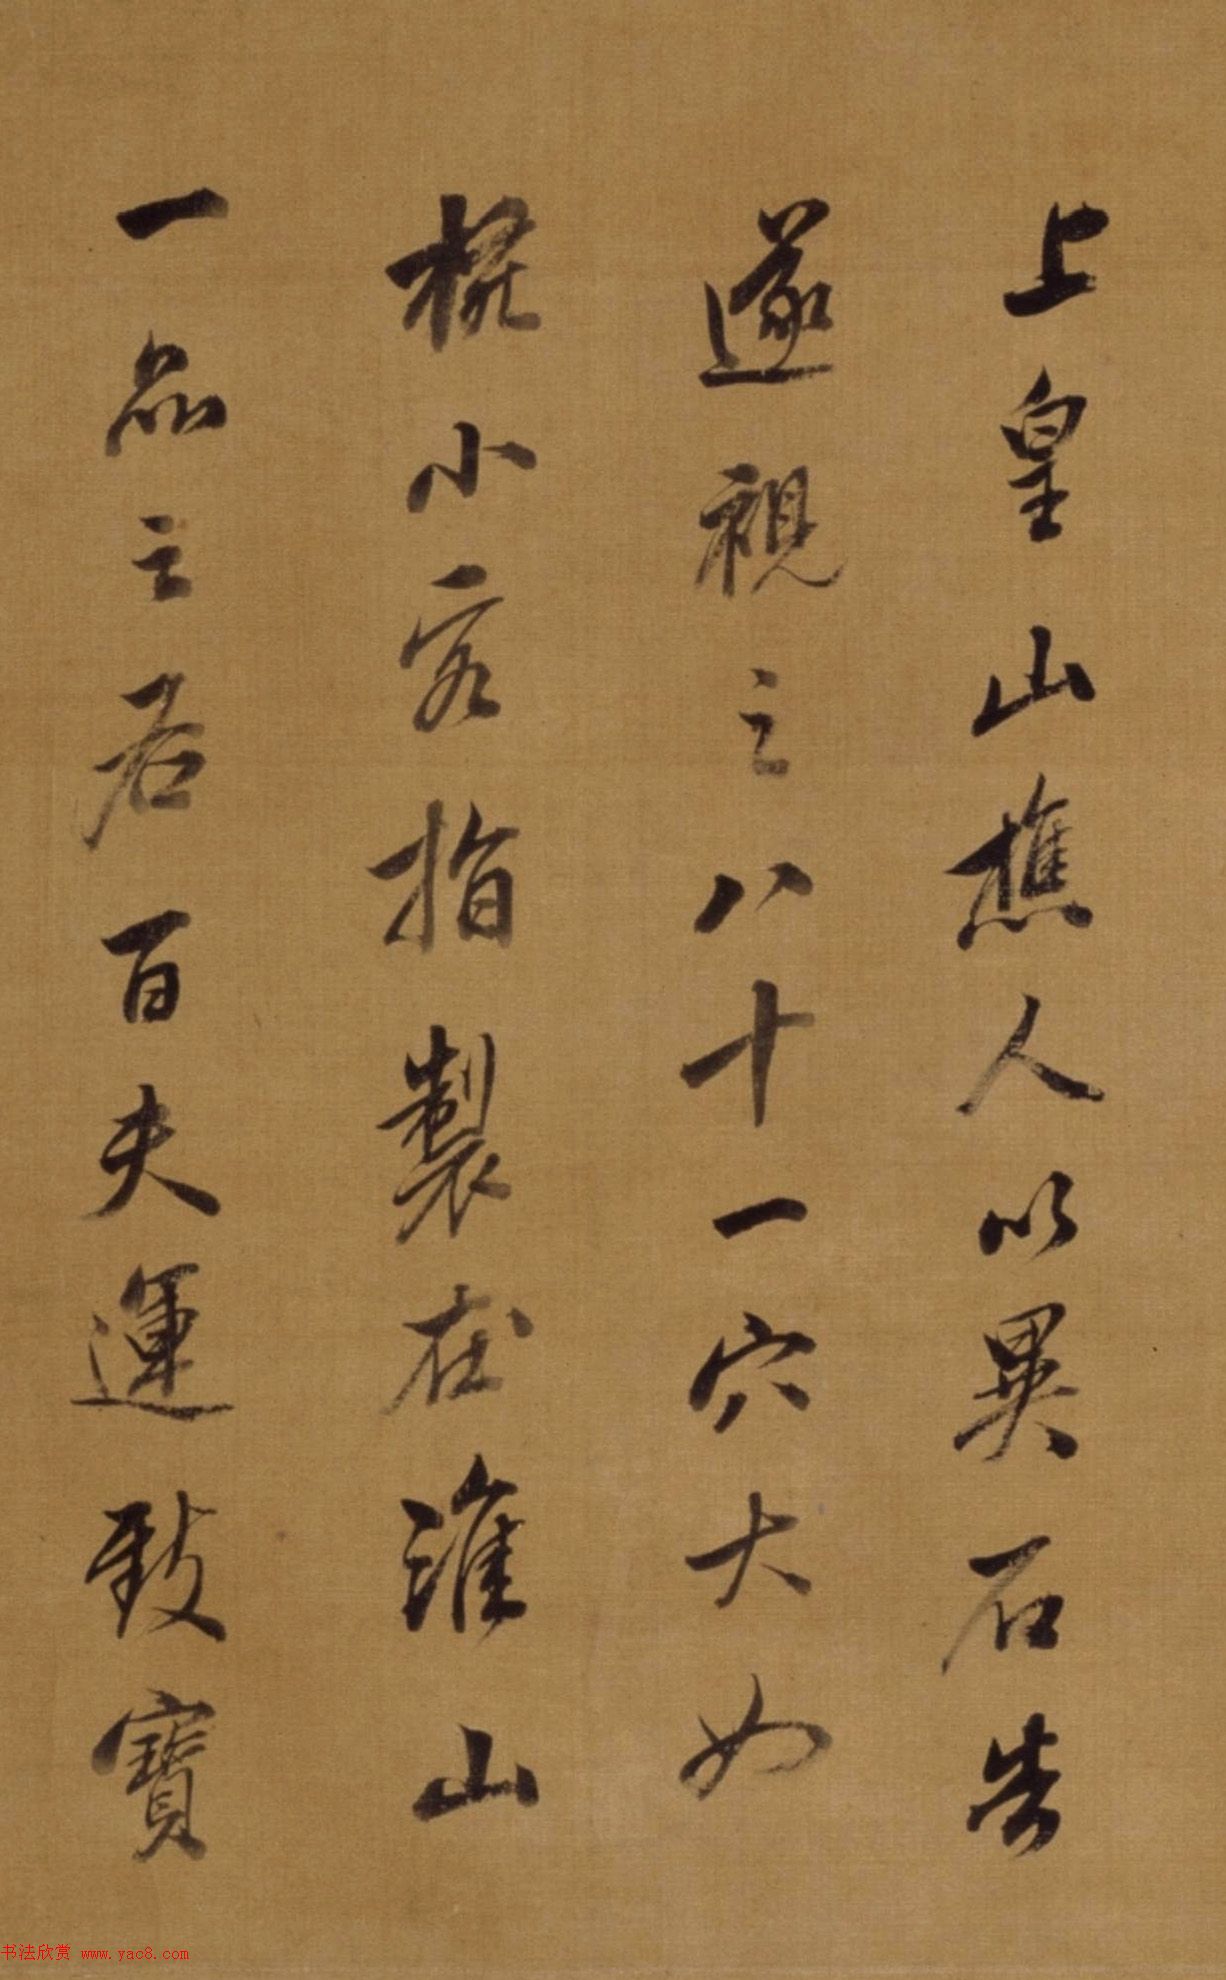 上皇山樵人以異石告
遂視之八十一穴大如
椀小容指製在淮山
一品之右百夫運致寶
书法欣赏 www.yac8.com